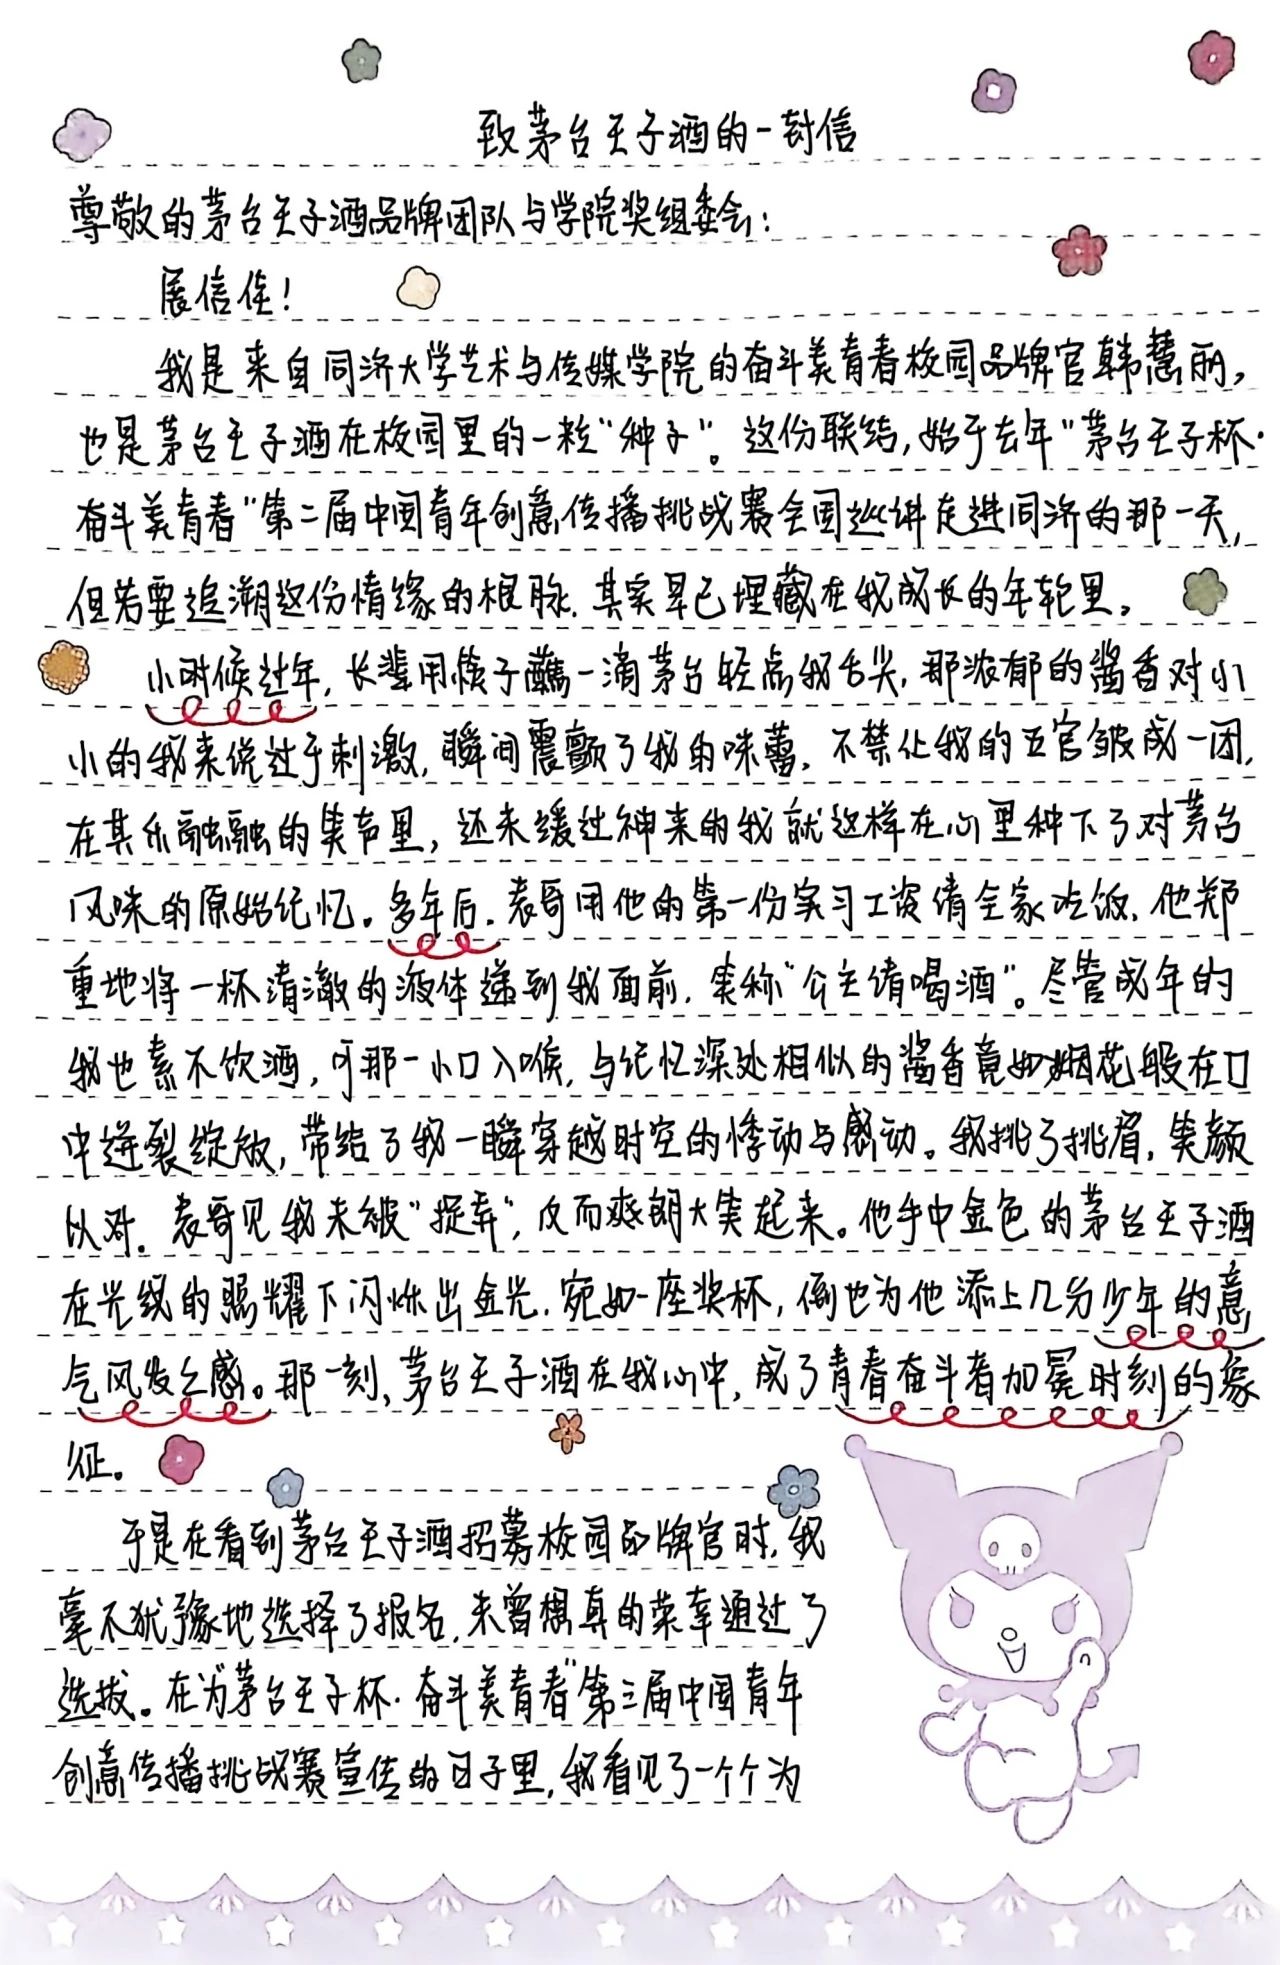 致茅台王子酒的一封信
尊敬的茅台王子酒品牌团队与学院奖组委会:
展信佳!
我是来自同济大学艺术与传媒学院的奋斗美青春校园品牌官韩慧丽,
也是茅台王子酒在校园里的一粒“种子”。这份联结,始于去年“茅台王子杯·
奋斗美青春”第二届中国青年创意传播挑战赛全国巡讲走进同济的那一天,
但若要追溯这份情缘的根脉,其实早已埋藏在我成长的年轮里。
小时候过年,长辈用筷子蘸一滴茅台轻点我舌尖,那浓郁的酱香对小
小的我来说过于刺激,瞬间震颤了我的味蕾,不禁让我的五官皱成一团,
在其乐融融的集市里,还未缓过神来的我就这样在心里种下了对茅台
风味的原始记忆。多年后,表哥用他的第一份实习工资请全家吃饭,他郑
重地将一杯清澈的液体递到我面前,笑称“公主请喝酒”。尽管成年的
我也素不饮酒,可那一小口入喉,与记忆深处相似的酱香竟如烟花般在口
中迸裂绽放,带给了我一瞬穿越时空的悸动与感动。我挑了挑眉,笑颜
以对,表哥见我未被“捉弄”,反而爽朗大笑起来。他手中金色的茅台王子酒
在光线的照耀下闪烁出金光,宛如一座奖杯,倒也为他添上几分少年的意
气风发之感。那一刻,茅台王子酒在我心中,成了青春奋斗者加冕时刻的象
征。
于是在看到茅台王子酒招募校园品牌官时,我
毫不犹豫地选择了报名,未曾想真的荣幸通过了
选拔。在为“茅台王子杯·奋斗美青春”第三届中国青年
创意传播挑战赛宣传的日子里,我看见了一个个为